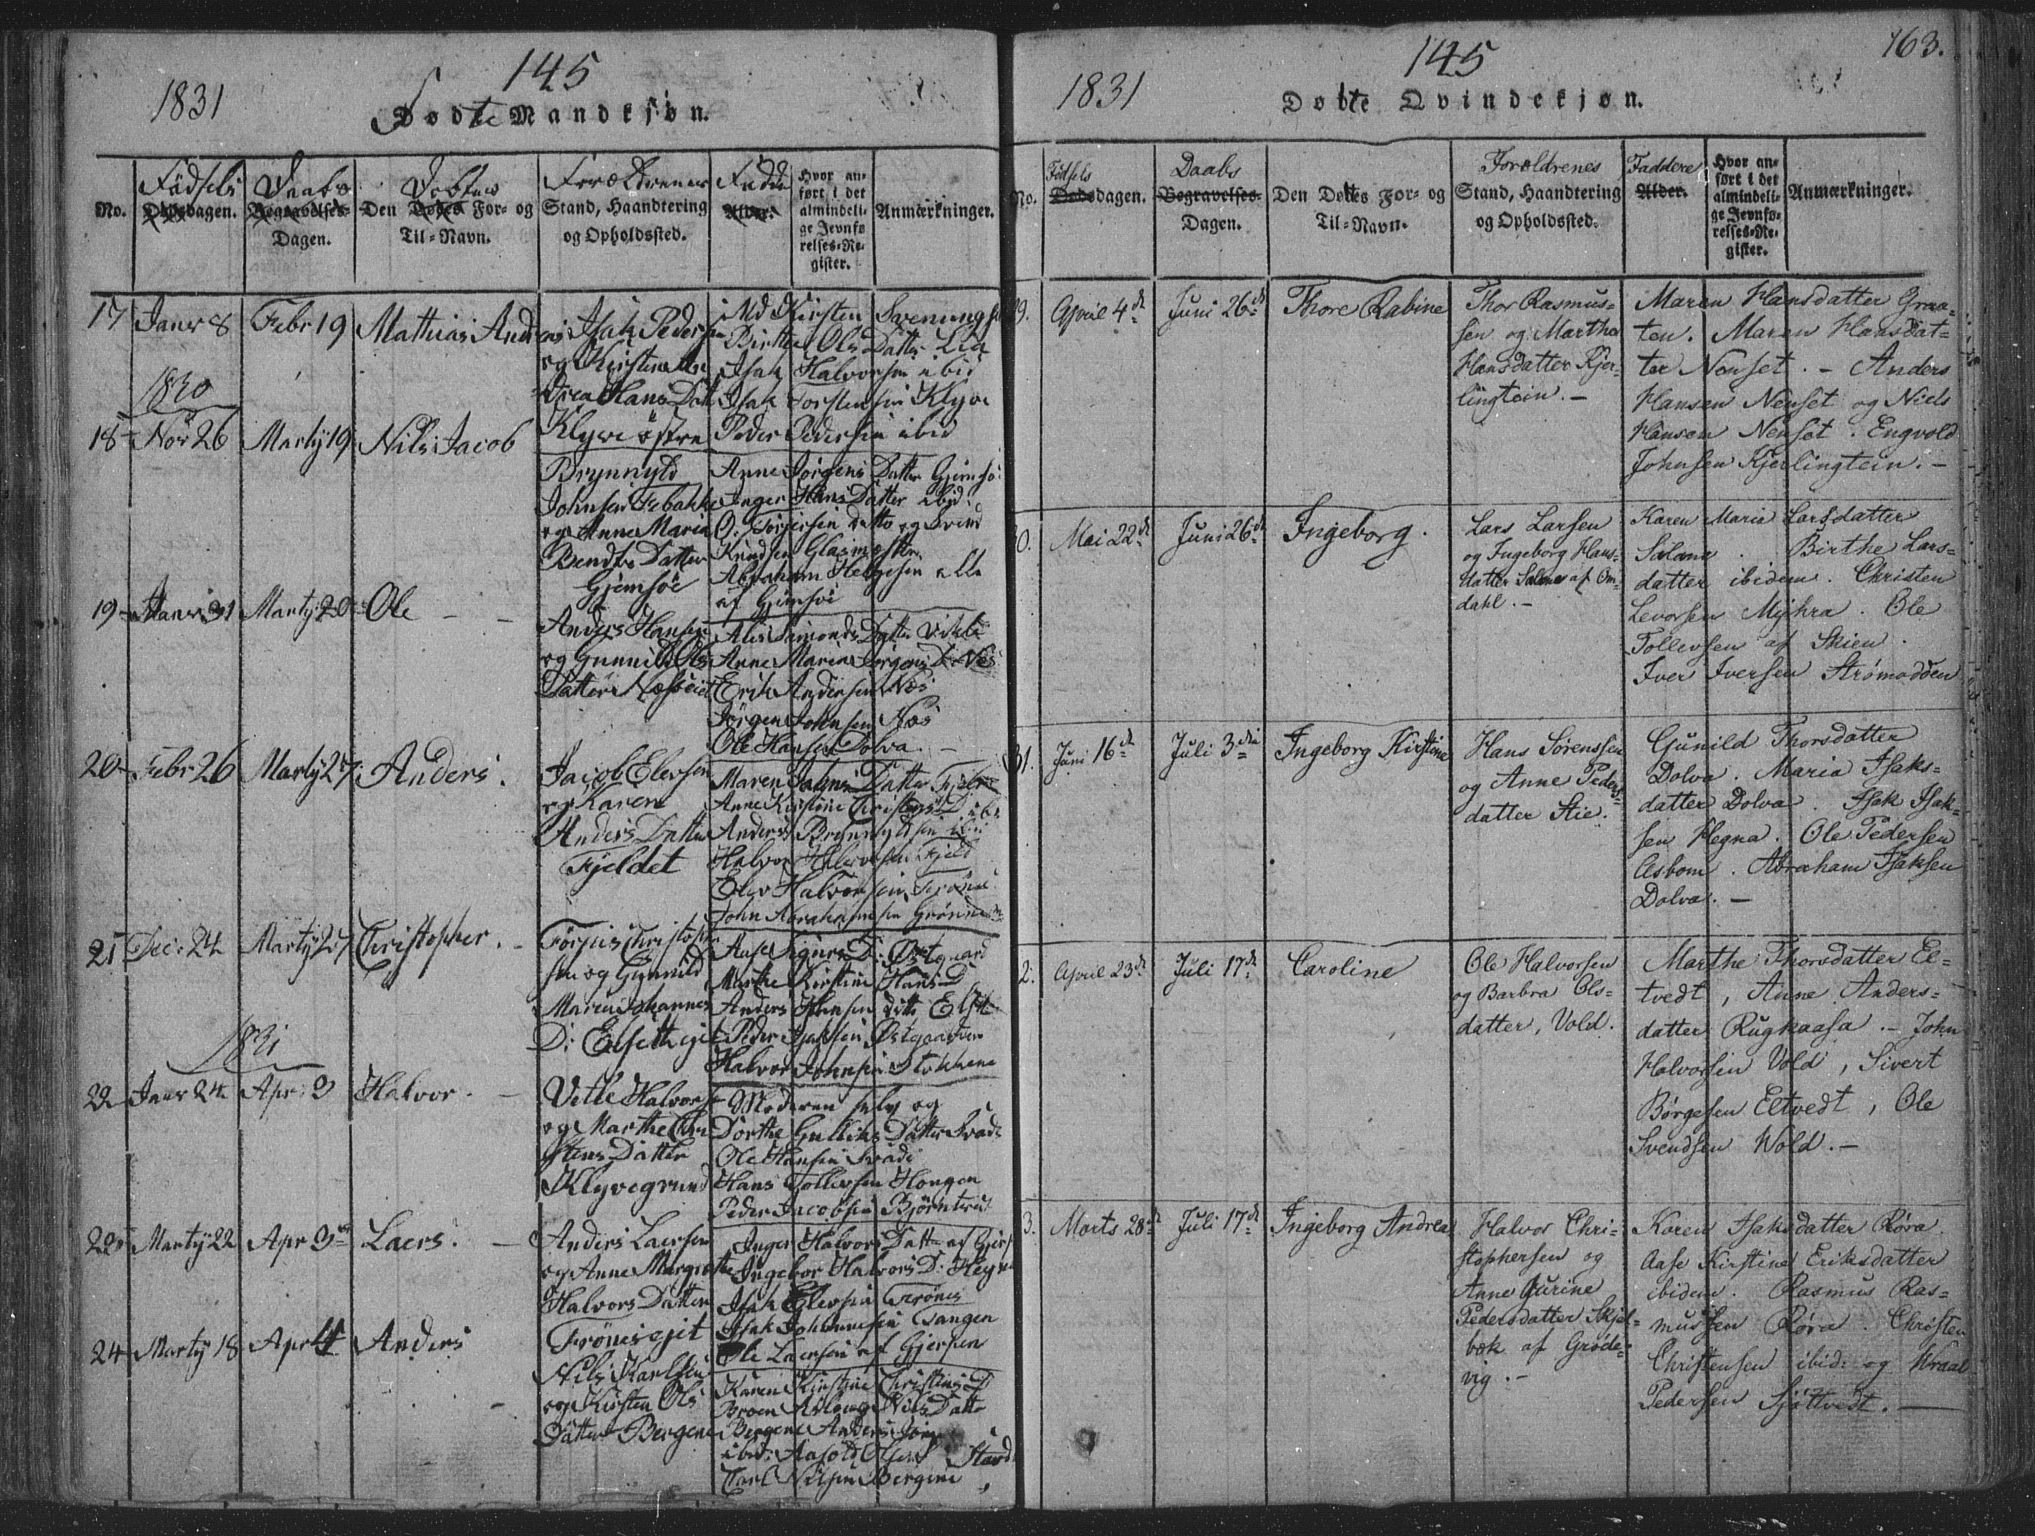 145
1831
Födte Mandkjøn.
No.
Födsels
Dødsdagen.
Daabs
Begravelses-
Dagen.
Døbtes
Den Dødes For- og
Til-Navn.
Forældrenes
Stand, Haandtering
og Opholdssted.
Fadde
Alder.
Hvor an-
ført i det
almindeli-
ge Jevnfø
relses-Re-
gister.
Anmærkninger.
17 Janr 8 Febr 19 Mathias Andreas
Isak Pedersen
og Kirstine An
drea Hans Datt
Klyve östre
Md Kirsten Svenungs
Birthe Ols Datter Lia
Isak Halvorsen ibid
Isak Torstensen Klyve
Peder Pedersen ibid
1830
18 Nov 26 Marty 19 Nils Jacob
Brynnyld
Johnsen Febakke
og Anne Maria
Bendts Datter
Gjemsöe
Anne Jörgens Datter Gjemsö
Inger Hans Datter ibid
O. Torgersen ditto og Svend
Knudsen Glasmester
Abraham Helgesen alle
af Gjemsöe
19 Janr 31 Marty 20 Ole
Anders Hansen
og Gunnild Ols
Datter Næsseiet
Alis Simonds Datter
Anne Maria Jörgens D. Næs
Erik Andersen Næs
Jörgen Johnsen Næs
Ole Hansen Dolva.
20 Febr 26 Marty 27 Anders.
Jacob Elevsen
og Karen
Anders Datter
Fjeldet
Maren Jahns Datter
Anne Kirstine Christens D. ibi
Anders Brynnyldsen ibid
Halvor Halvorsen Fjeld
Elev Halvorsen
John Abrahamsen
21 Dec: 24 Marty 27 Christopher.
Törgius Christoph
sen og Gunnild
Maria Johannes
D: Elseth eiet
Aase Signes D: Østgaard
Marthe Kirstine Hans D
Anders Johnsen ditto
Peder Isaksen Østgaarden
Halvor Johnsen Stokkene
1831
22 Janr 24 Apr: 3 Halvor.
Vetle Halvors
og Marthe Chri
stens Datter
Klyvegrund
Moderen selv og
Dorthe Gulliks Datter
Ole Hansen
Hans Tollevsen Haugen
Peder Jacobsen Björntvet
23 Marty 22 Apr 3 Laers.
Anders Laersen
og Anne Margrethe
Halvors Datter
Frönes eiet
Inger Halvors Datt af Gjer
Ingebor Halvors D:
Isak Elevsen Frönes
Isak Johannesen Tangen
Ole Laersen af Gjerpen
24 Marty 18 Apr 4 Anders
Nils Karlsen
og Kirsten Ols
Datter Bergene
Karen Kirstine Christens D
Broen Aslaug Nils Datt
Bergene Anders
ibid. Aasold Olsen
Carl Nilsen Bergene
145
163.
1831
Døbte Qvindekjøn.
No.
Födsels
Dødsdagen.
Daabs
Begravelses-
Dagen.
Den Døtes For- og
Til-Navn.
Forældrenes
Stand, Haandtering
og Opholdssted.
Faddere
Alder.
Hvor an-
ført i det
almindeli-
ge Jevnfø-
relses-Re-
gister.
Anmærkninger.
29. April 4de Juni 26de Thore Rabine
Thor Rasmus-
sen og Marthe
Hansdatter Kjer-
lingtein. -
Maren Hansdatter Graa-
ten. Maren Hansdat-
ter Nenset. - Anders
Hansen Nenset og Niels
Hanson Nenset. Engvold
Johnsen Kjerlingtein. -
30. Mai 22de Juni 26de Ingeborg.
Lars Larsen
og Ingeborg Hans-
datter Salme af Om-
dahl. -
Karen Maria Larsdatter
Salame. Birthe Lars-
datter ibidem. Christen
Levorsen Myhra. Ole
Tollevsen af Skien.
Iver Iversen Strømodden
31. Juni 16de Juli 3die Ingeborg Kirstine
Hans Sørenssen
og Anne Peders-
datter Stie.
Gunild Thorsdatter
Dolva. Maria Isaks-
datter Dolva. Isak Isak-
sen Hegna. Ole Pedersen
Asbom. Abraham Isaksen
Dolva. -
2. April 23de Juli 17de Caroline
Ole Halvorsen
og Barbra Ols-
datter, Vold.
Marthe Thorsdatter El-
tvedt, Anne Anders-
datter Rugkaasa. - John
Halvorsen Vold, Sivert
Børgesen Eltvedt, Ole
Svendsen Wold. -
3. Marts 28de Juli 17de Ingeborg Andrea
Halvor Chri-
stophersen og
Anne Gurine
Pedersdatter Skjel-
bæk af Grøde-
vig. -
Karen Isaksdatter Røra.
Aase Kirstine Eriksdatter
ibidem. Rasmus Ras-
mussen Røra. Christen
Christensen ibid: og Wraal
Pedersen Sjøttvedt. -